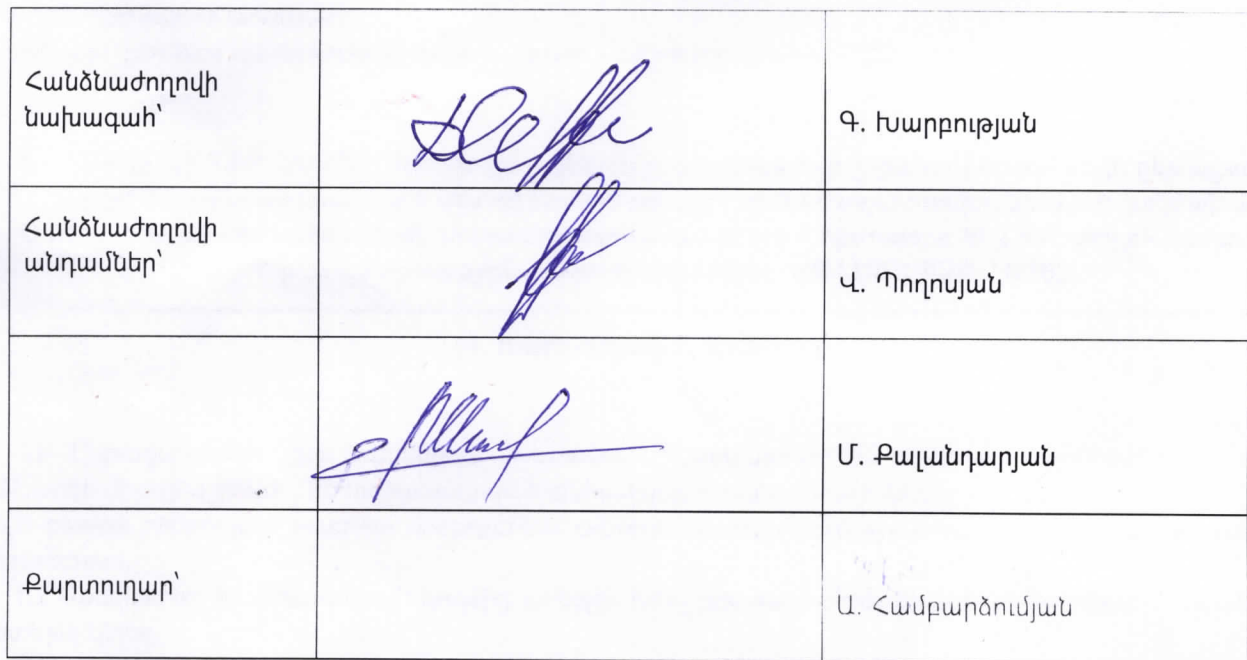 Հանձնաժողովի
նախագահ՝
Գ. Խարբության
Հանձնաժողովի
անդամներ՝
Վ. Պողոսյան
Մ. Քալանդարյան
Քարտուղար՝
Ա. Համբարձումյան